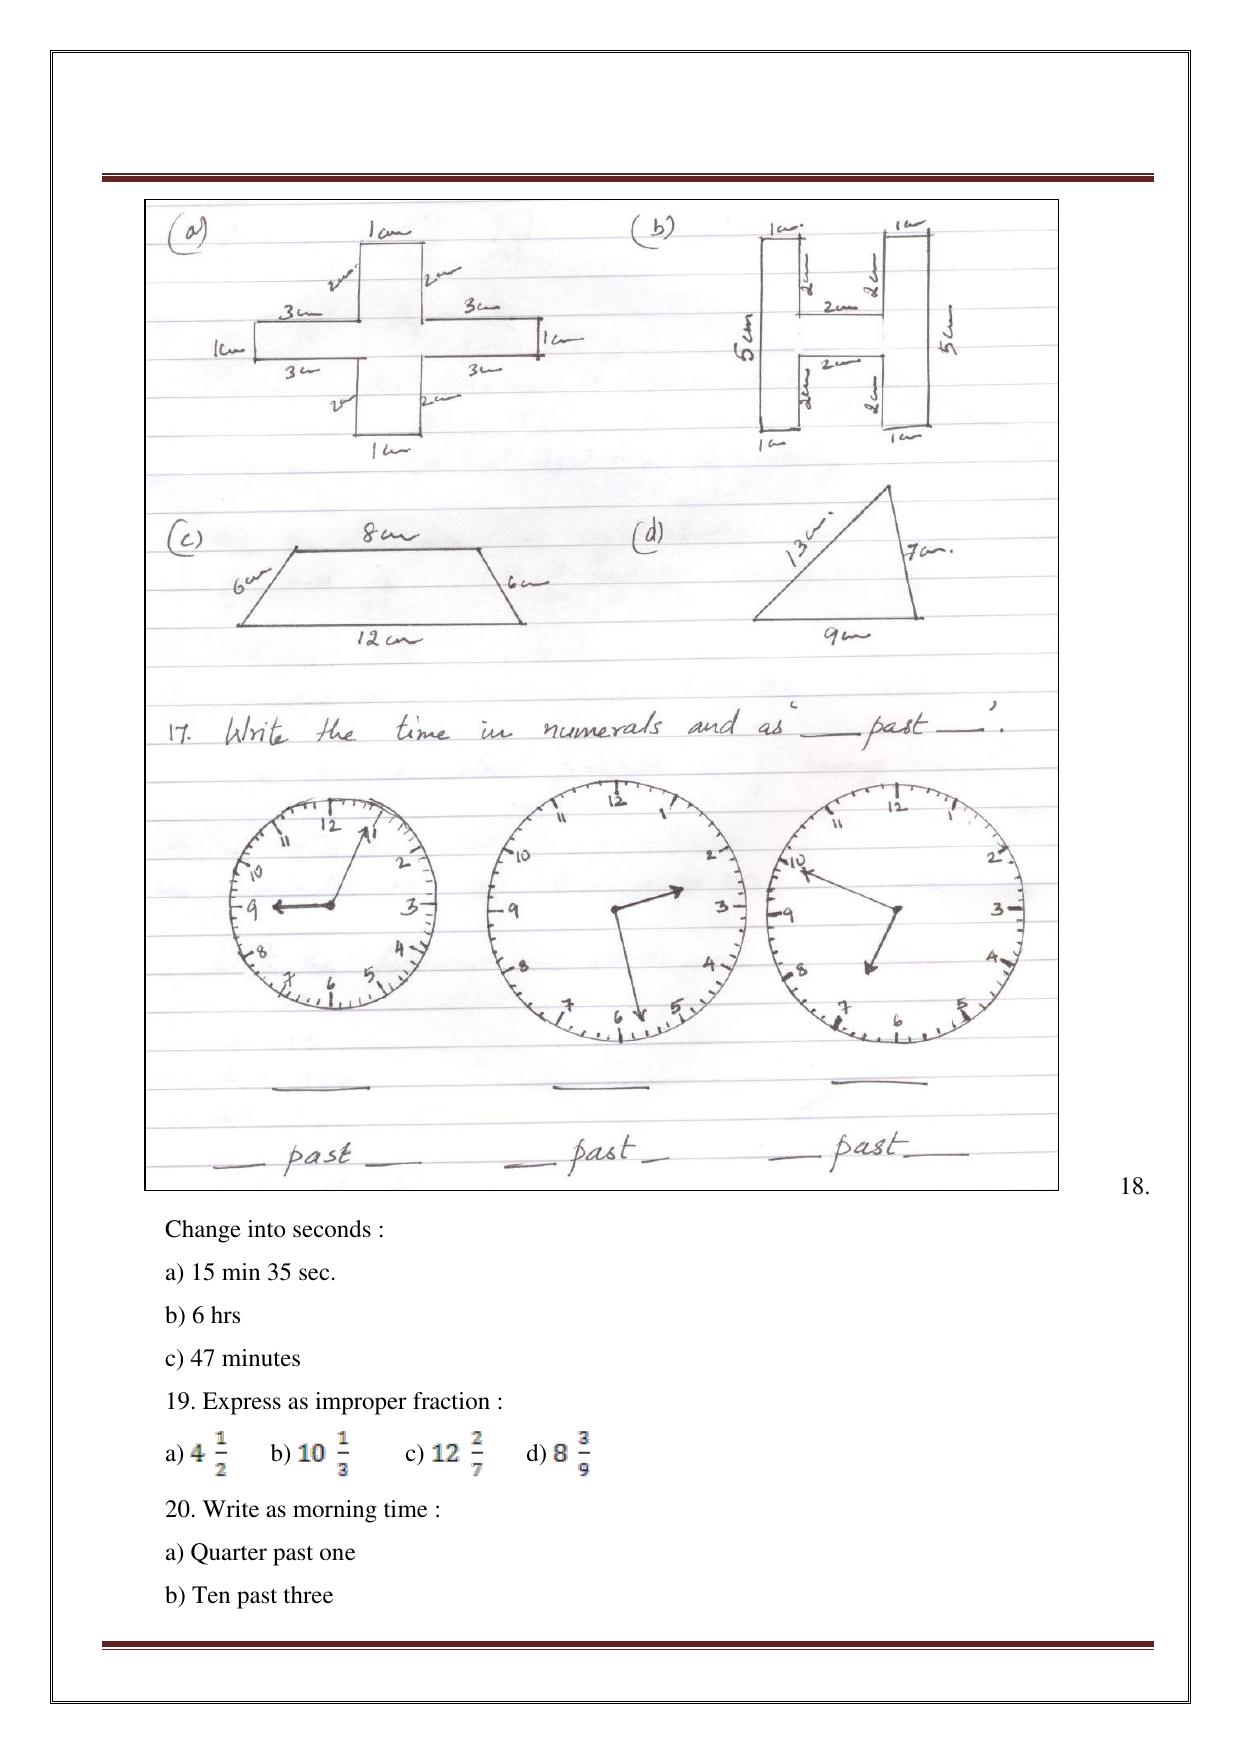 (a) (b)
1cm 1cm. 1cm
2cm 2cm 2cm 2cm
3cm 3cm 2cm
1cm 1cm 5cm 5cm
3cm 3cm 2cm
2cm 2cm 2cm 2cm
1cm 1cm 1cm
(c) (d)
8cm 13cm.
6cm 6cm 7cm.
12cm 9cm
17. Write the time in numerals and as ‘ ___ past ___ ’.
12 1 2 3 4 5 6 7 8 9 10 11
12 1 2 3 4 5 6 7 8 9 10 11
12 1 2 3 4 5 6 7 8 9 10 11
___ past ___ ___ past ___ ___ past ___
18.
Change into seconds :
a) 15 min 35 sec.
b) 6 hrs
c) 47 minutes
19. Express as improper fraction :
a) 4 1/2 b) 10 1/3 c) 12 2/7 d) 8 3/9
20. Write as morning time :
a) Quarter past one
b) Ten past three